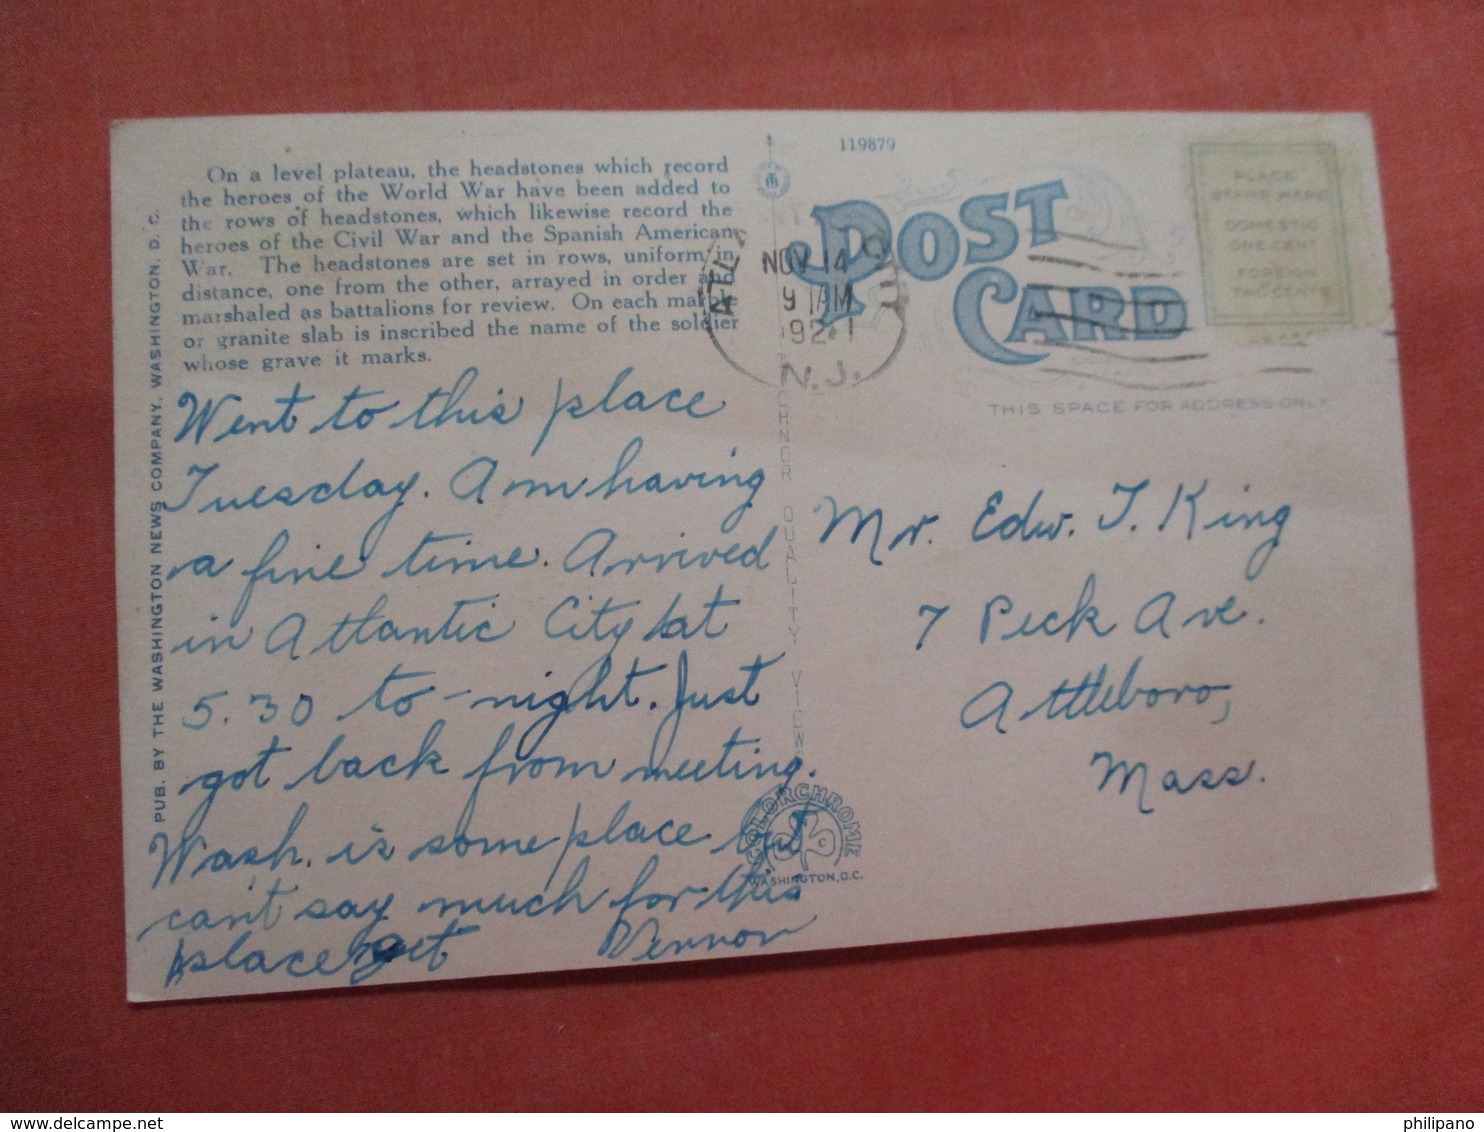 On a level plateau, the headstones which record
the heroes of the World War have been added to
the rows of headstones, which likewise record the
heroes of the Civil War and the Spanish American
War. The headstones are set in rows, uniform in
distance, one from the other, arrayed in order and
marshaled as battalions for review. On each marble
or granite slab is inscribed the name of the soldier
whose grave it marks.
Went to this place
Tuesday. Am having
a fine time. Arrived
in Atlantic City at
5.30 to-night. Just
got back from meeting.
Wash. is some place but
can't say much for this
place yet Vernon
PUB. BY THE WASHINGTON NEWS COMPANY, WASHINGTON, D. C.
119879
POST
CARD
NOV 14
9 AM
N.J.
PLACE
STAMP HERE
DOMESTIC
ONE CENT
FOREIGN
TWO CENTS
THIS SPACE FOR ADDRESS ONLY
Mr. Edw. T. King
7 Peck Ave.
Attleboro,
Mass.
QUALITY VIEWS
COLORCHROME
WASHINGTON, D.C.
philipano